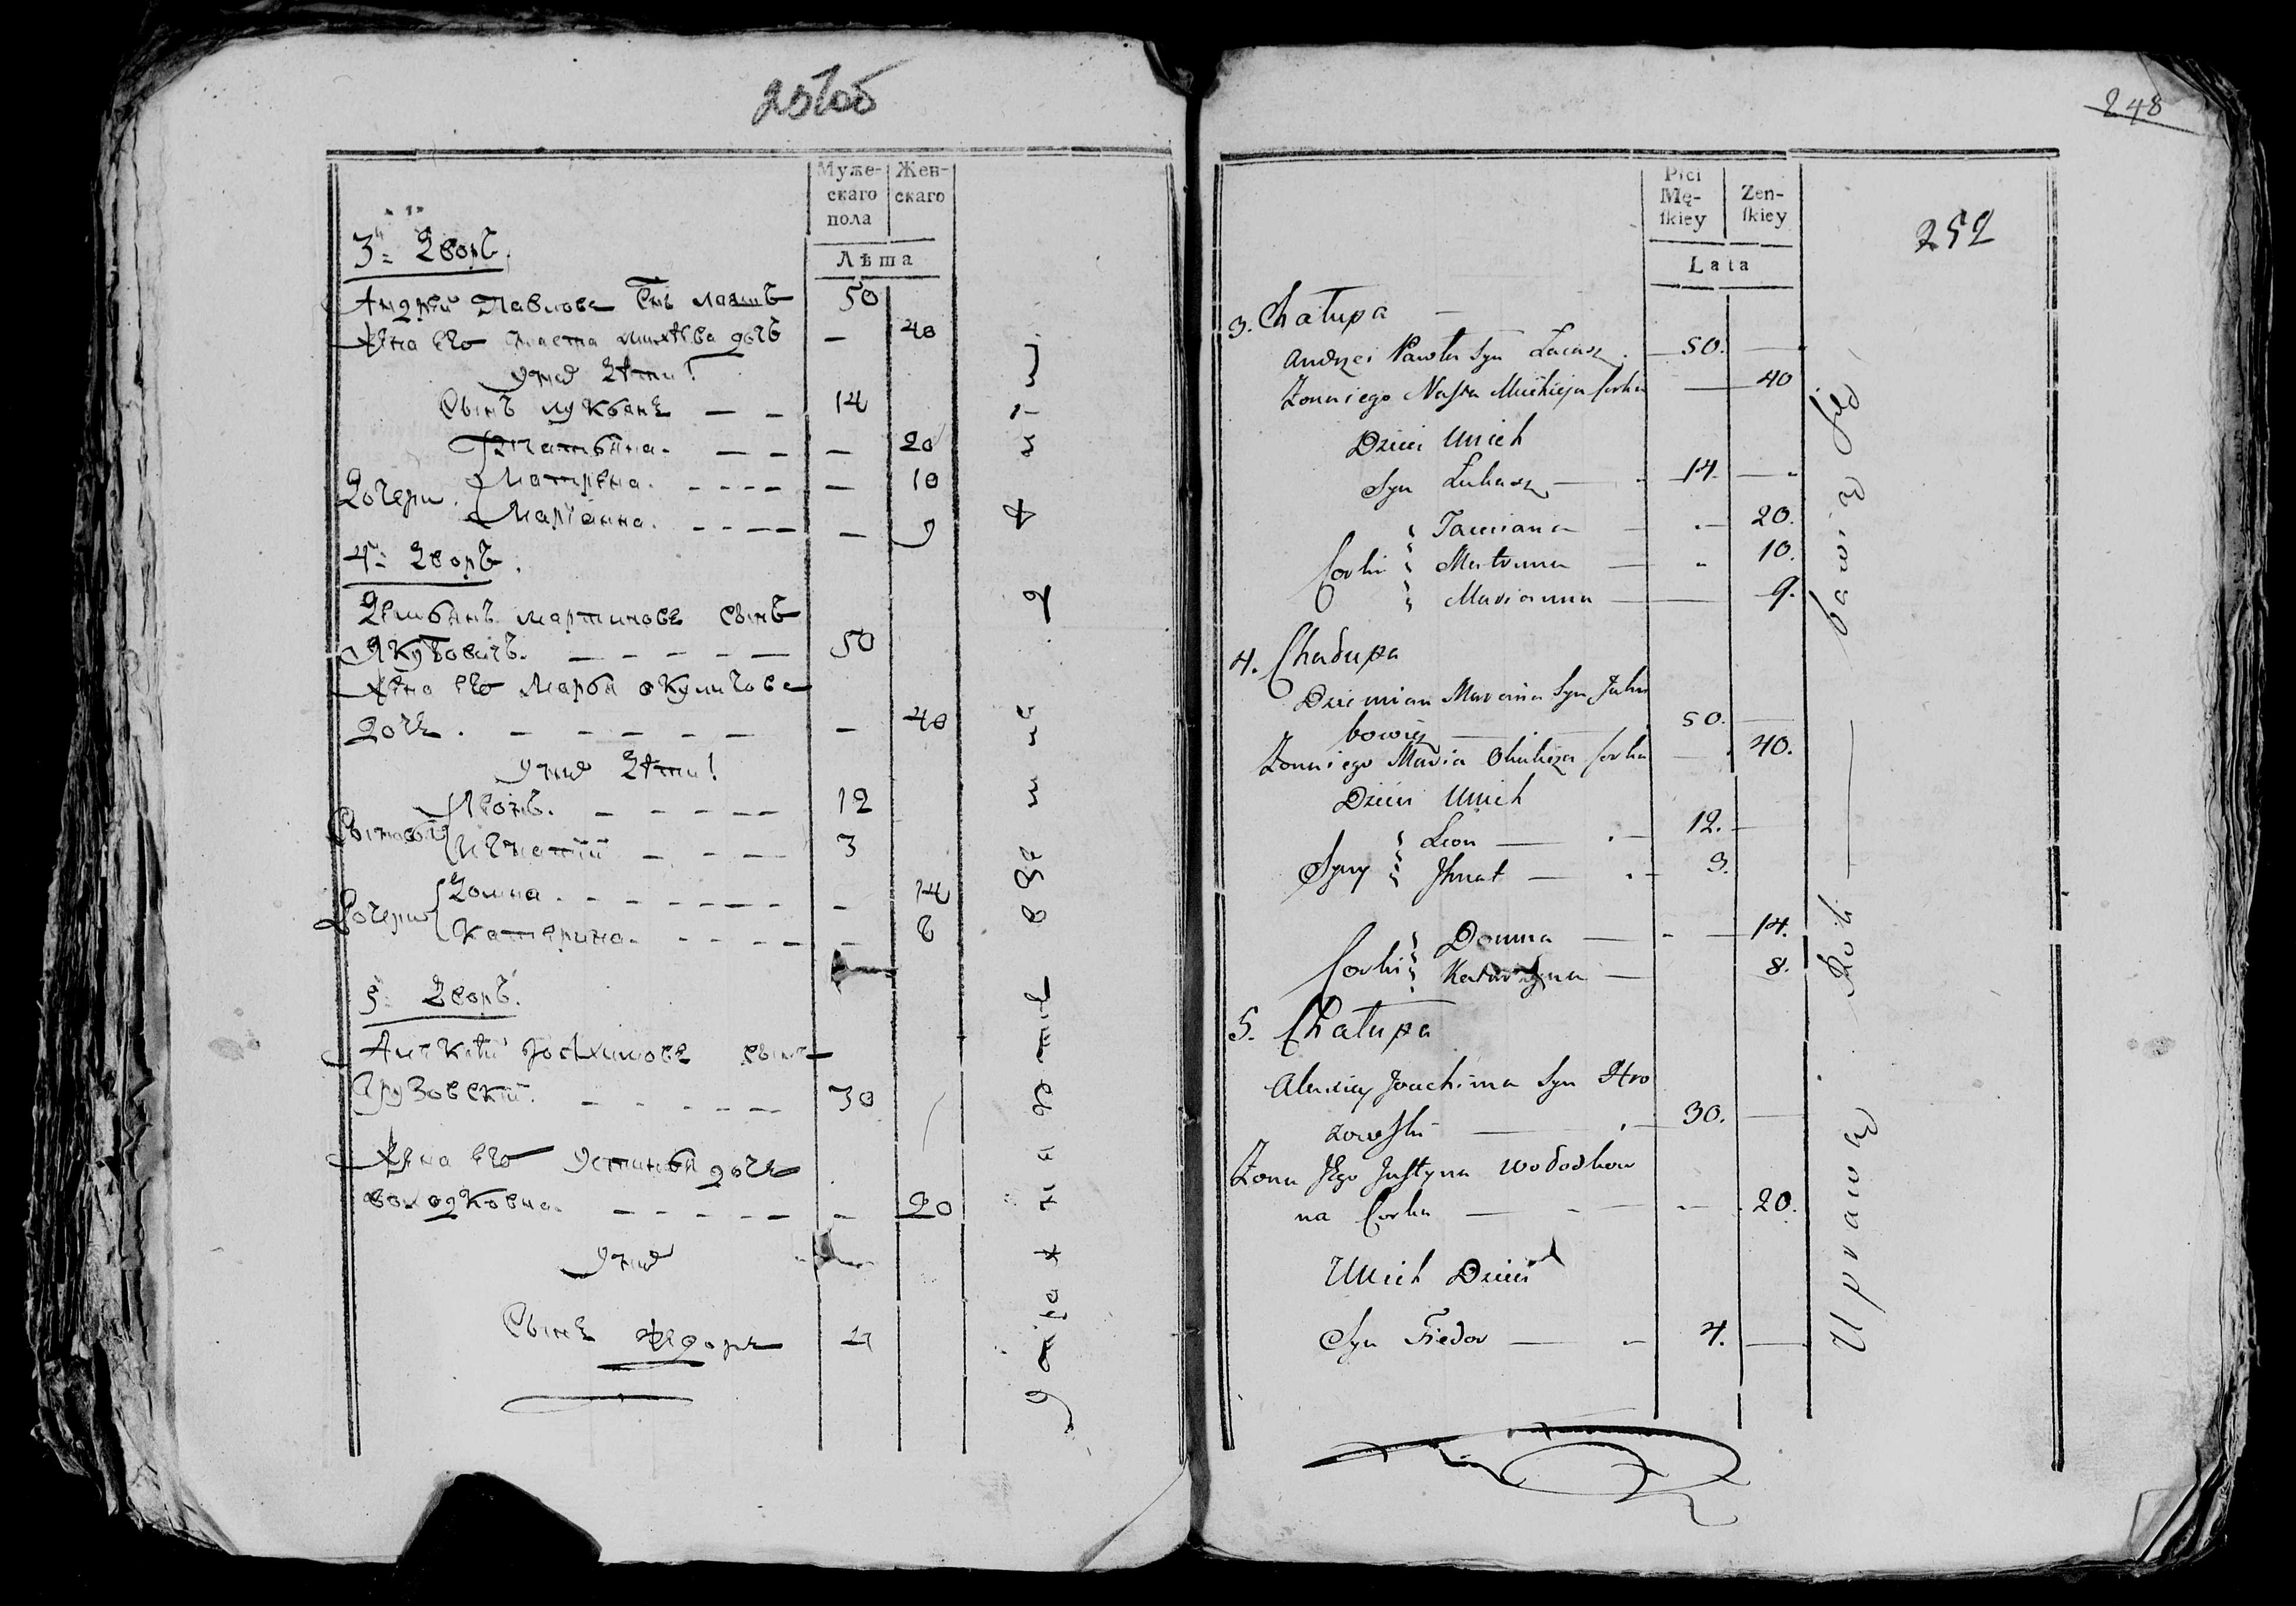 Муже-
скаго
пола
Жен-
скаго
Лѣта
3. Дворъ.
Андрѣй Павловъ Снъ
50
Жена его Наста дочь
40
У них дѣти
Сынъ Лукьянъ
14
Татьяна
20
Дочери Матрена
10
Марiанна
9
4. Дворъ
Демьянъ Мартиновъ сынъ
Якубовичъ
50
Жена его Марья Окуличова
дочь
40
У них дѣти
Сыновья Леонъ
12
Игнатiй
3
Дочери Домна
14
Катерина
8
5. Дворъ.
Алексѣй Іоахимовъ сынъ
30
Жена его Устинья дочь
Володковна
20
У них
Сынъ Федоръ
4
248
252
Płci
Mę-
ſkiey
Zen-
ſkiey
Lata
3. Chałupa
Andrzei Pawła Syn
50.
Żona iego Nasta Michieja Corka
40
Dzieci Unich
Syn Łukasz
14.
Taciana
20.
Corki Matruna
10.
Marianna
9.
4. Chałupa
Dziemian Marcina Syn Jaku
bowicz
50.
Żona iego Maria Okulicza Corka
40.
Dzieci Unich
Leon
12.
Syny Ihnat
3.
Domna
14.
Corki Katarzyna
8.
5. Chałupa
Alexiey Joachima Syn Hro
zowski
30.
Żona Jego Justyna Wołodkow
na Corka
20.
Unich Dzieci
Syn Fiedor
4.
Uprawą Roli bawią się